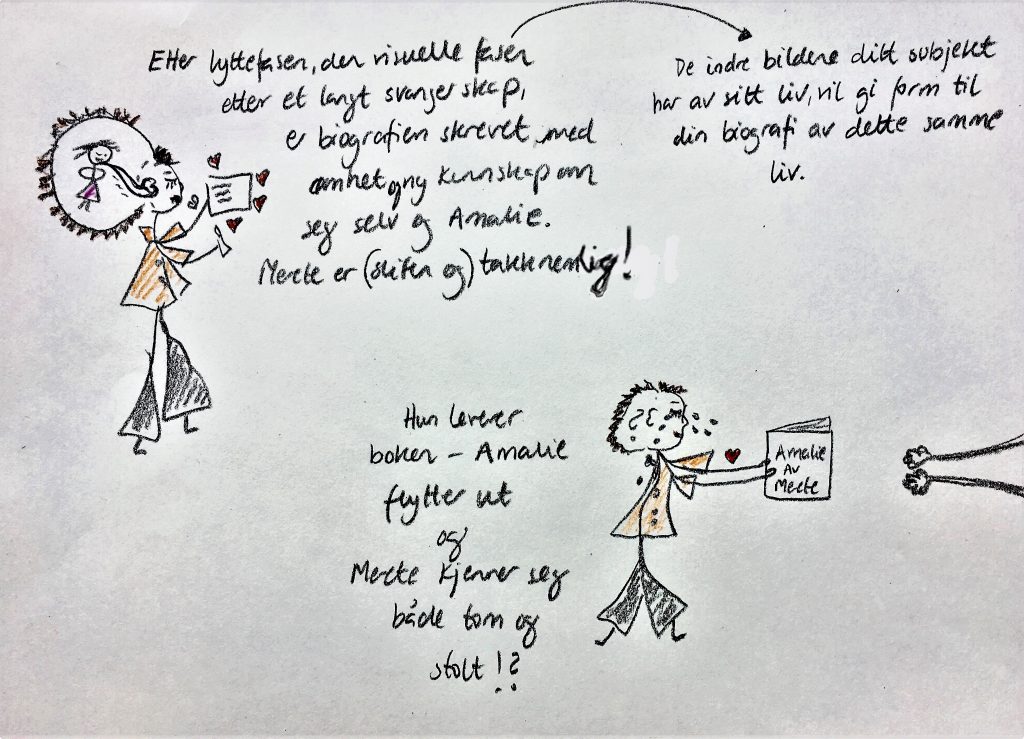 Etter lyttefasen, den visuelle fasen
etter et langt svangerskap,
er biografien skrevet, med
ømhet og ny kunnskap om
seg selv og Amalie.
Merete er (sliten og) takknemlig!
De indre bildene ditt subjekt
har av sitt liv, vil gi form til
din biografi av dette samme
liv.
Hun leverer
boken - Amalie
flytter ut
og
Merete kjenner seg
både tom og
stolt!?
Amalie
Av
Merete